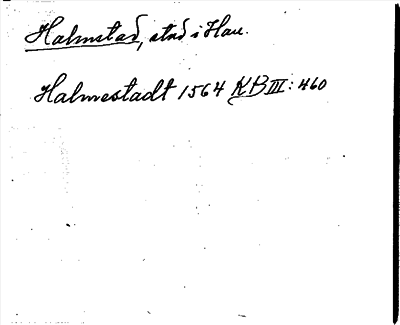 Halmstad, stad i Hall.
Halmestadt 1564 KB III: 460